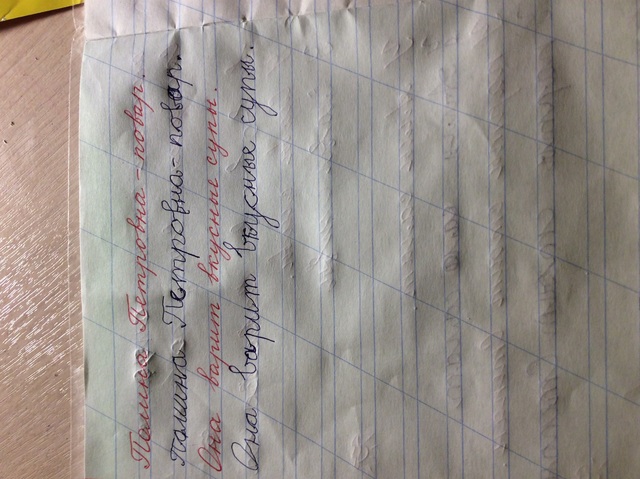 Полина Петровна - повар.
Полина Петровна - повар.
Она варит вкусные супы.
Она варит вкусные супы.